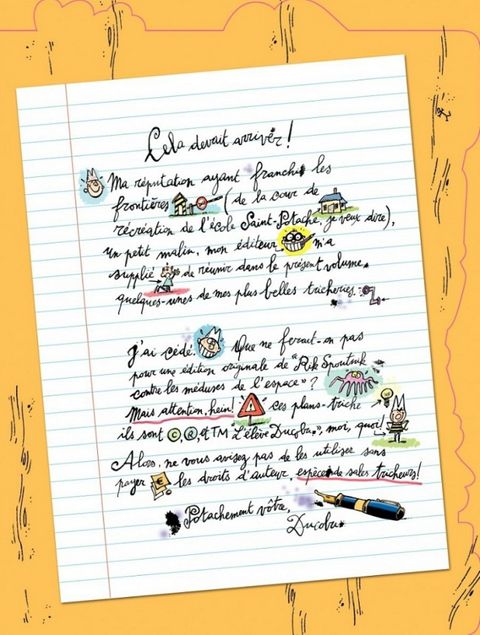 Cela devait arriver !
Ma réputation ayant franchi les
frontières (de la cour de
récréation de l'école Saint-Potache, je veux dire),
un petit malin, mon éditeur m'a
supplié de réunir dans le présent volume
quelques-unes de mes plus belles tricheries.
J'ai cédé. Que ne ferait-on pas
pour une édition originale de "Rik Spoutnik
contre les méduses de l'espace" ?
Mais attention, hein ! ces plans-triche
ils sont © ® et TM "L'élève Ducobu", moi, quoi !
Alors, ne vous avisez pas de les utiliser sans
payer les droits d'auteur, espèce de sales tricheurs !
Potachement vôtre,
Ducobu